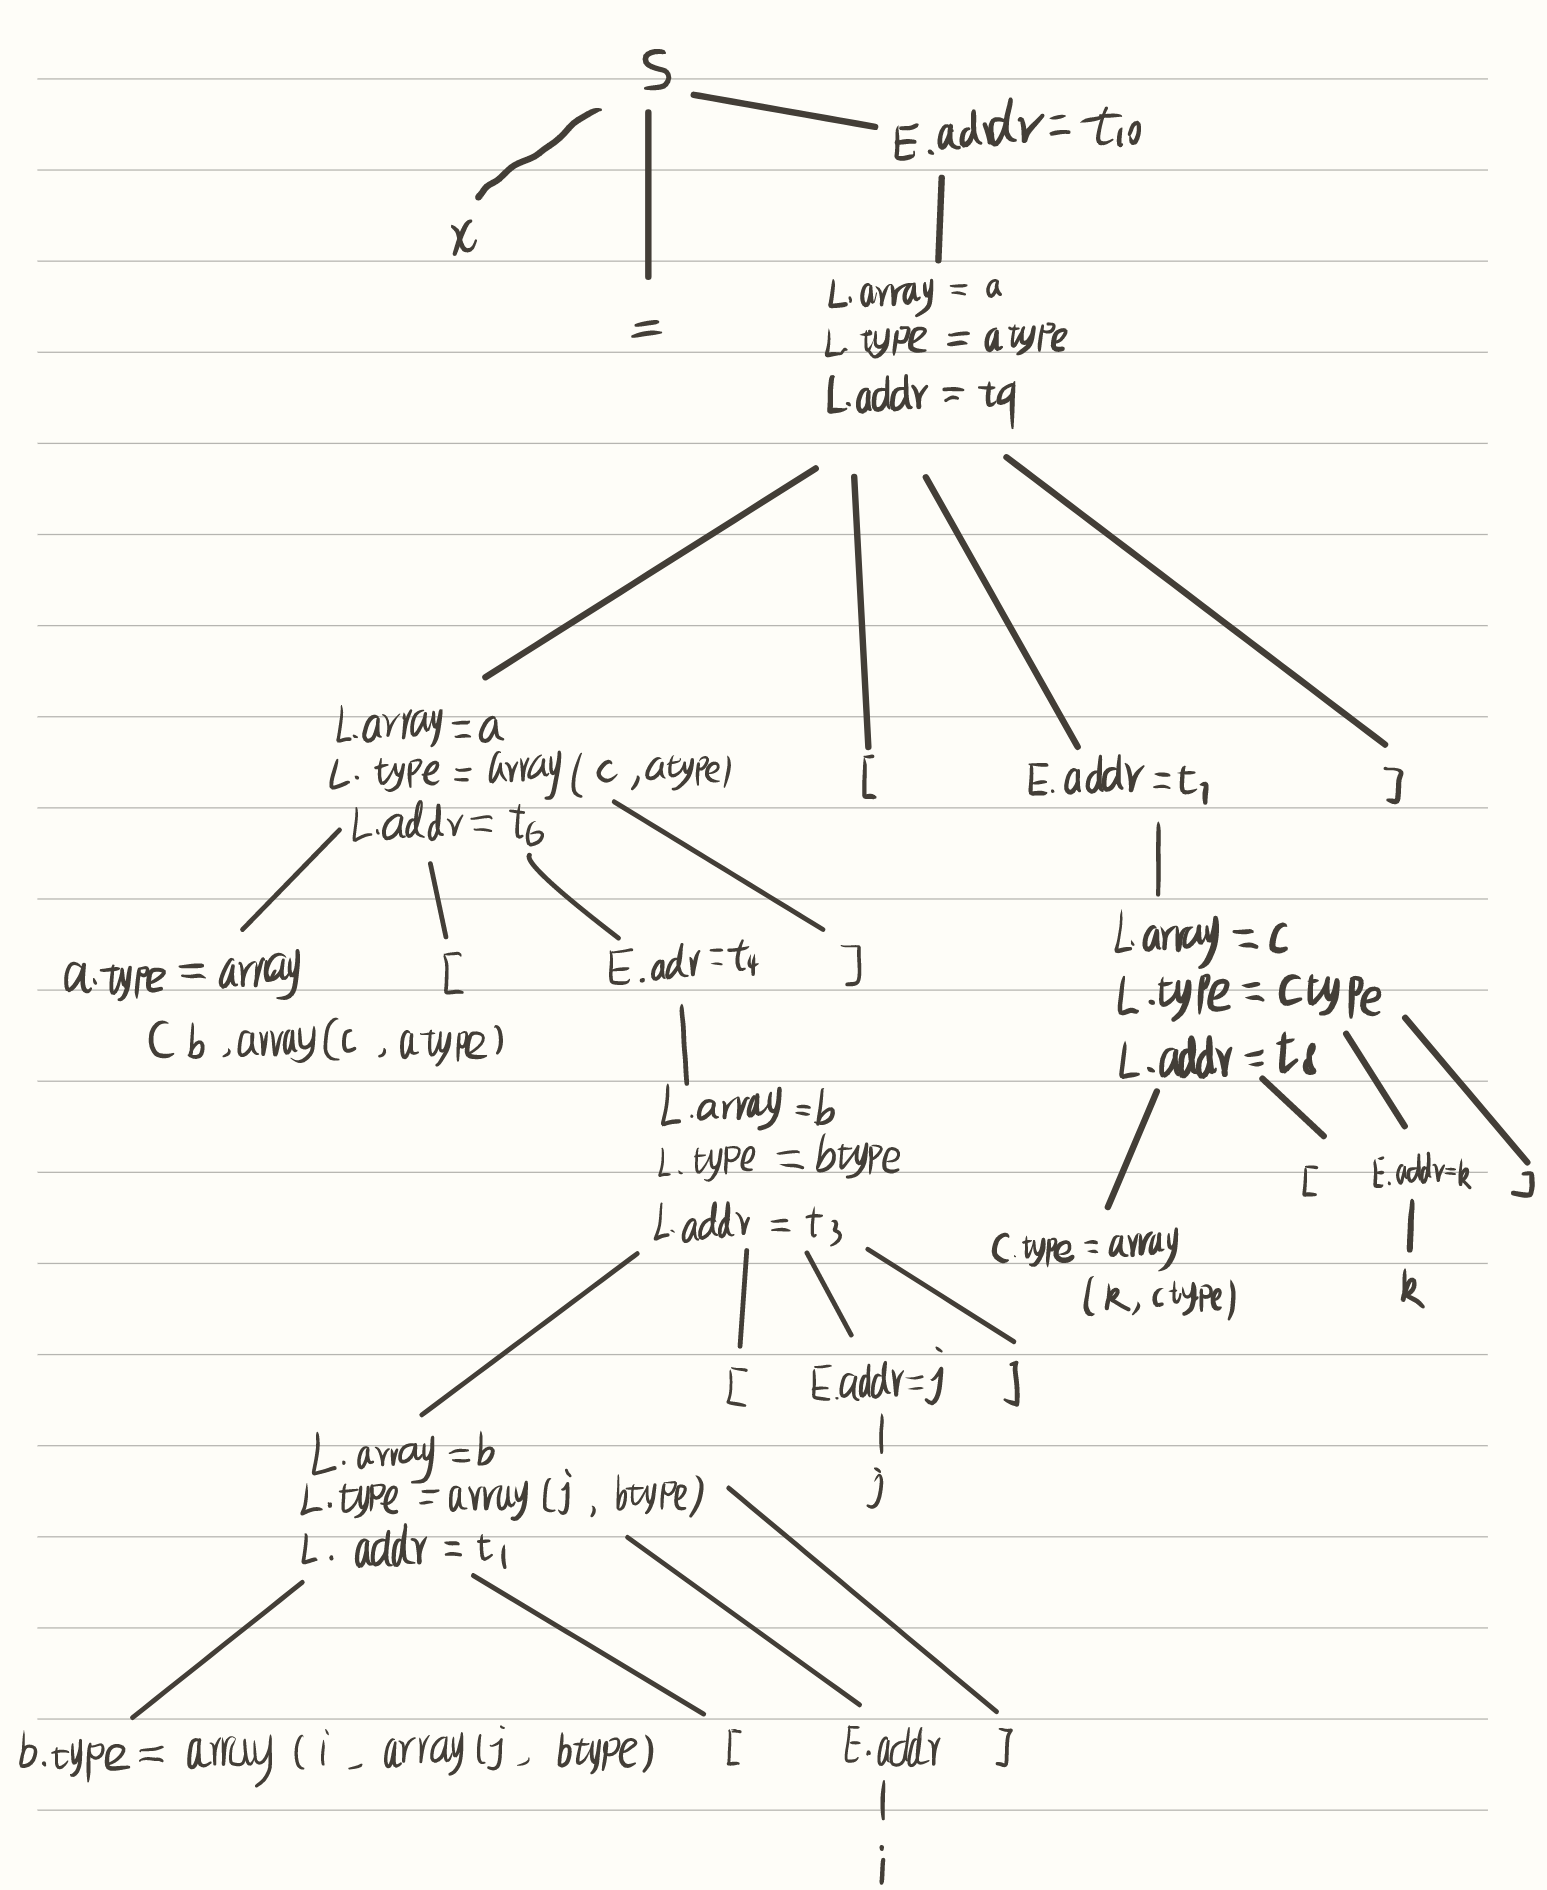 S
E.addr = t10
x
=
L.array = a
L.type = atype
L.addr = t9
L.array = a
L.type = array(c, atype)
L.addr = t6
[
E.addr = t7
]
a.type = array
(b, array(c, atype)
[
E.adr = t4
]
L.array = c
L.type = ctype
L.addr = t8
L.array = b
L.type = btype
L.addr = t3
c.type = array
(k, ctype)
[
E.addr=k
]
k
[
E.addr=j
]
j
L.array = b
L.type = array(j, btype)
L. addr = t1
b.type = array(i, array(j, btype)
[
E.addr
]
i